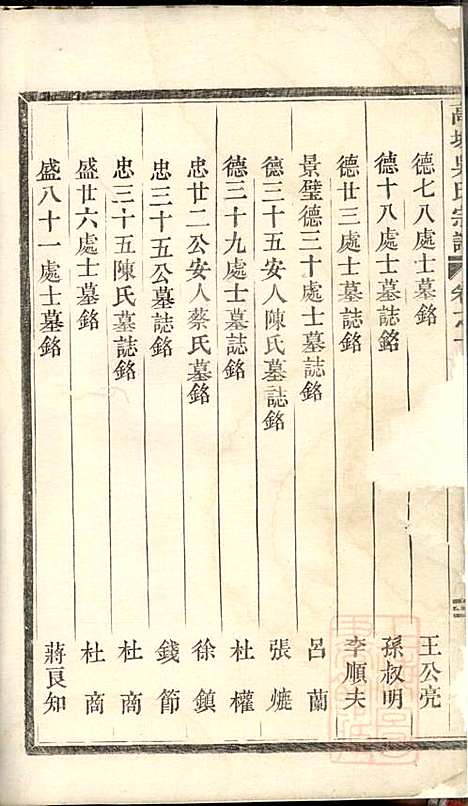 吳氏宗譜 卷之十
德七八處士墓銘 王公亮
德十八處士墓誌銘 孫叔明
德廿三處士墓誌銘 李順夫
景璧德三十處士墓誌銘 呂蘭
德三十五安人陳氏墓誌銘 張熝
德三十九處士墓誌銘 杜權
忠廿二公安人蔡氏墓銘 徐鎮
忠三十五公墓誌銘 錢節
忠三十五陳氏墓誌銘 杜商
盛廿六處士墓銘 杜商
盛八十一處士墓銘 蔣良知